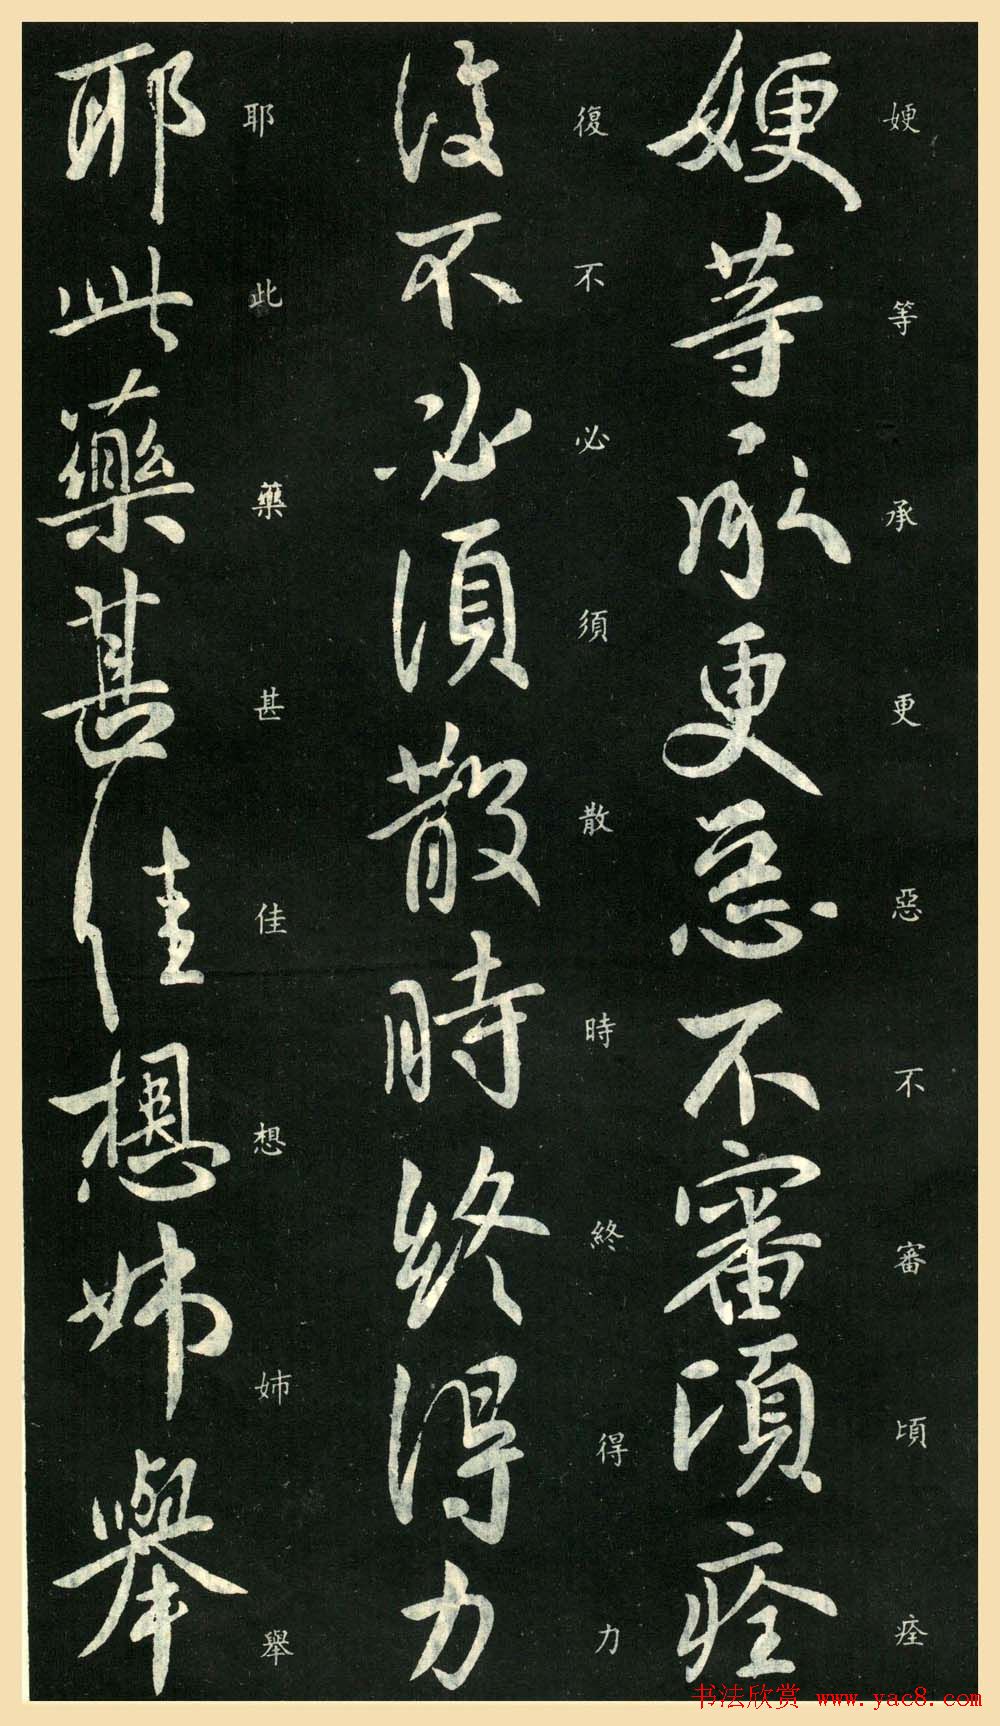 㛐等承更惡不審頃痊
㛐等承更惡不審頃痊
復不必須散時終得力
復不必須散時終得力
耶此藥甚佳想姉舉
耶此藥甚佳想姉舉
书法欣赏 www.yac8.com